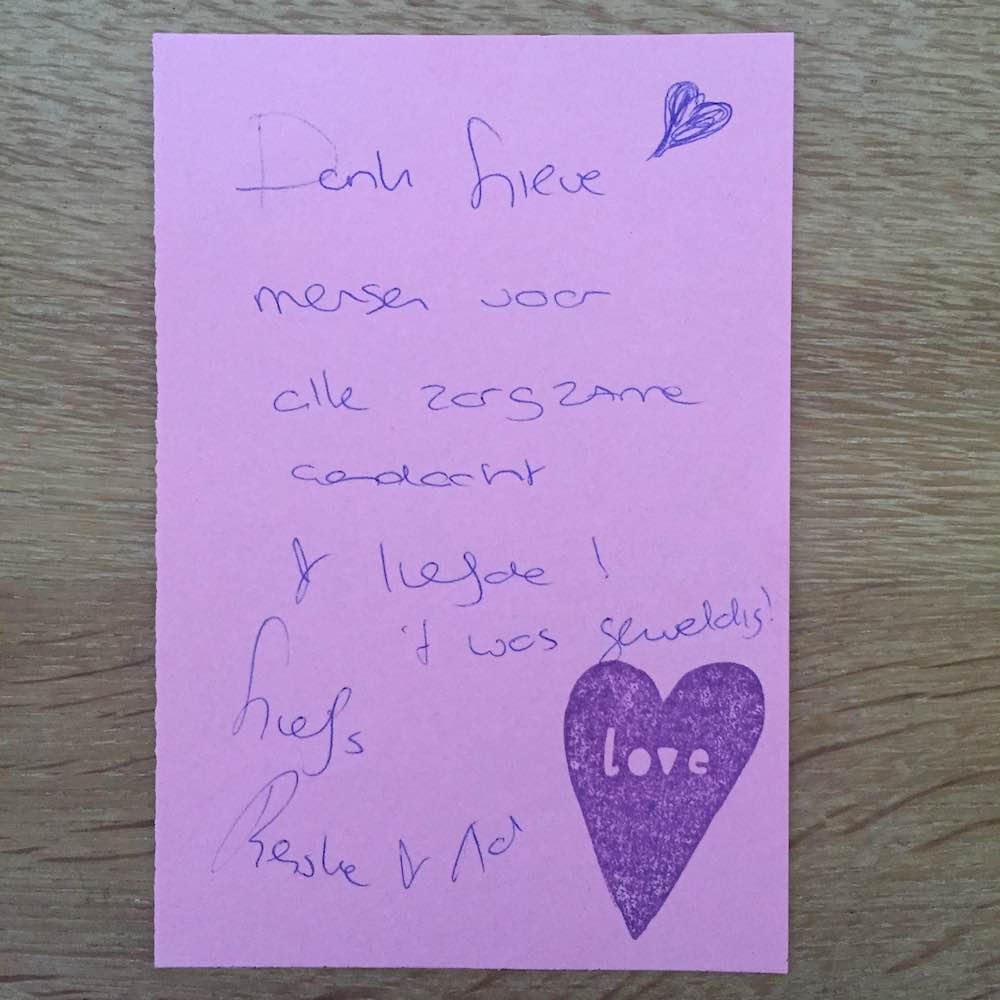 Dank Lieve
mensen voor
alle zorgzame
aandacht
& liefde!
't was geweldig!
Liefs
& Ad
love